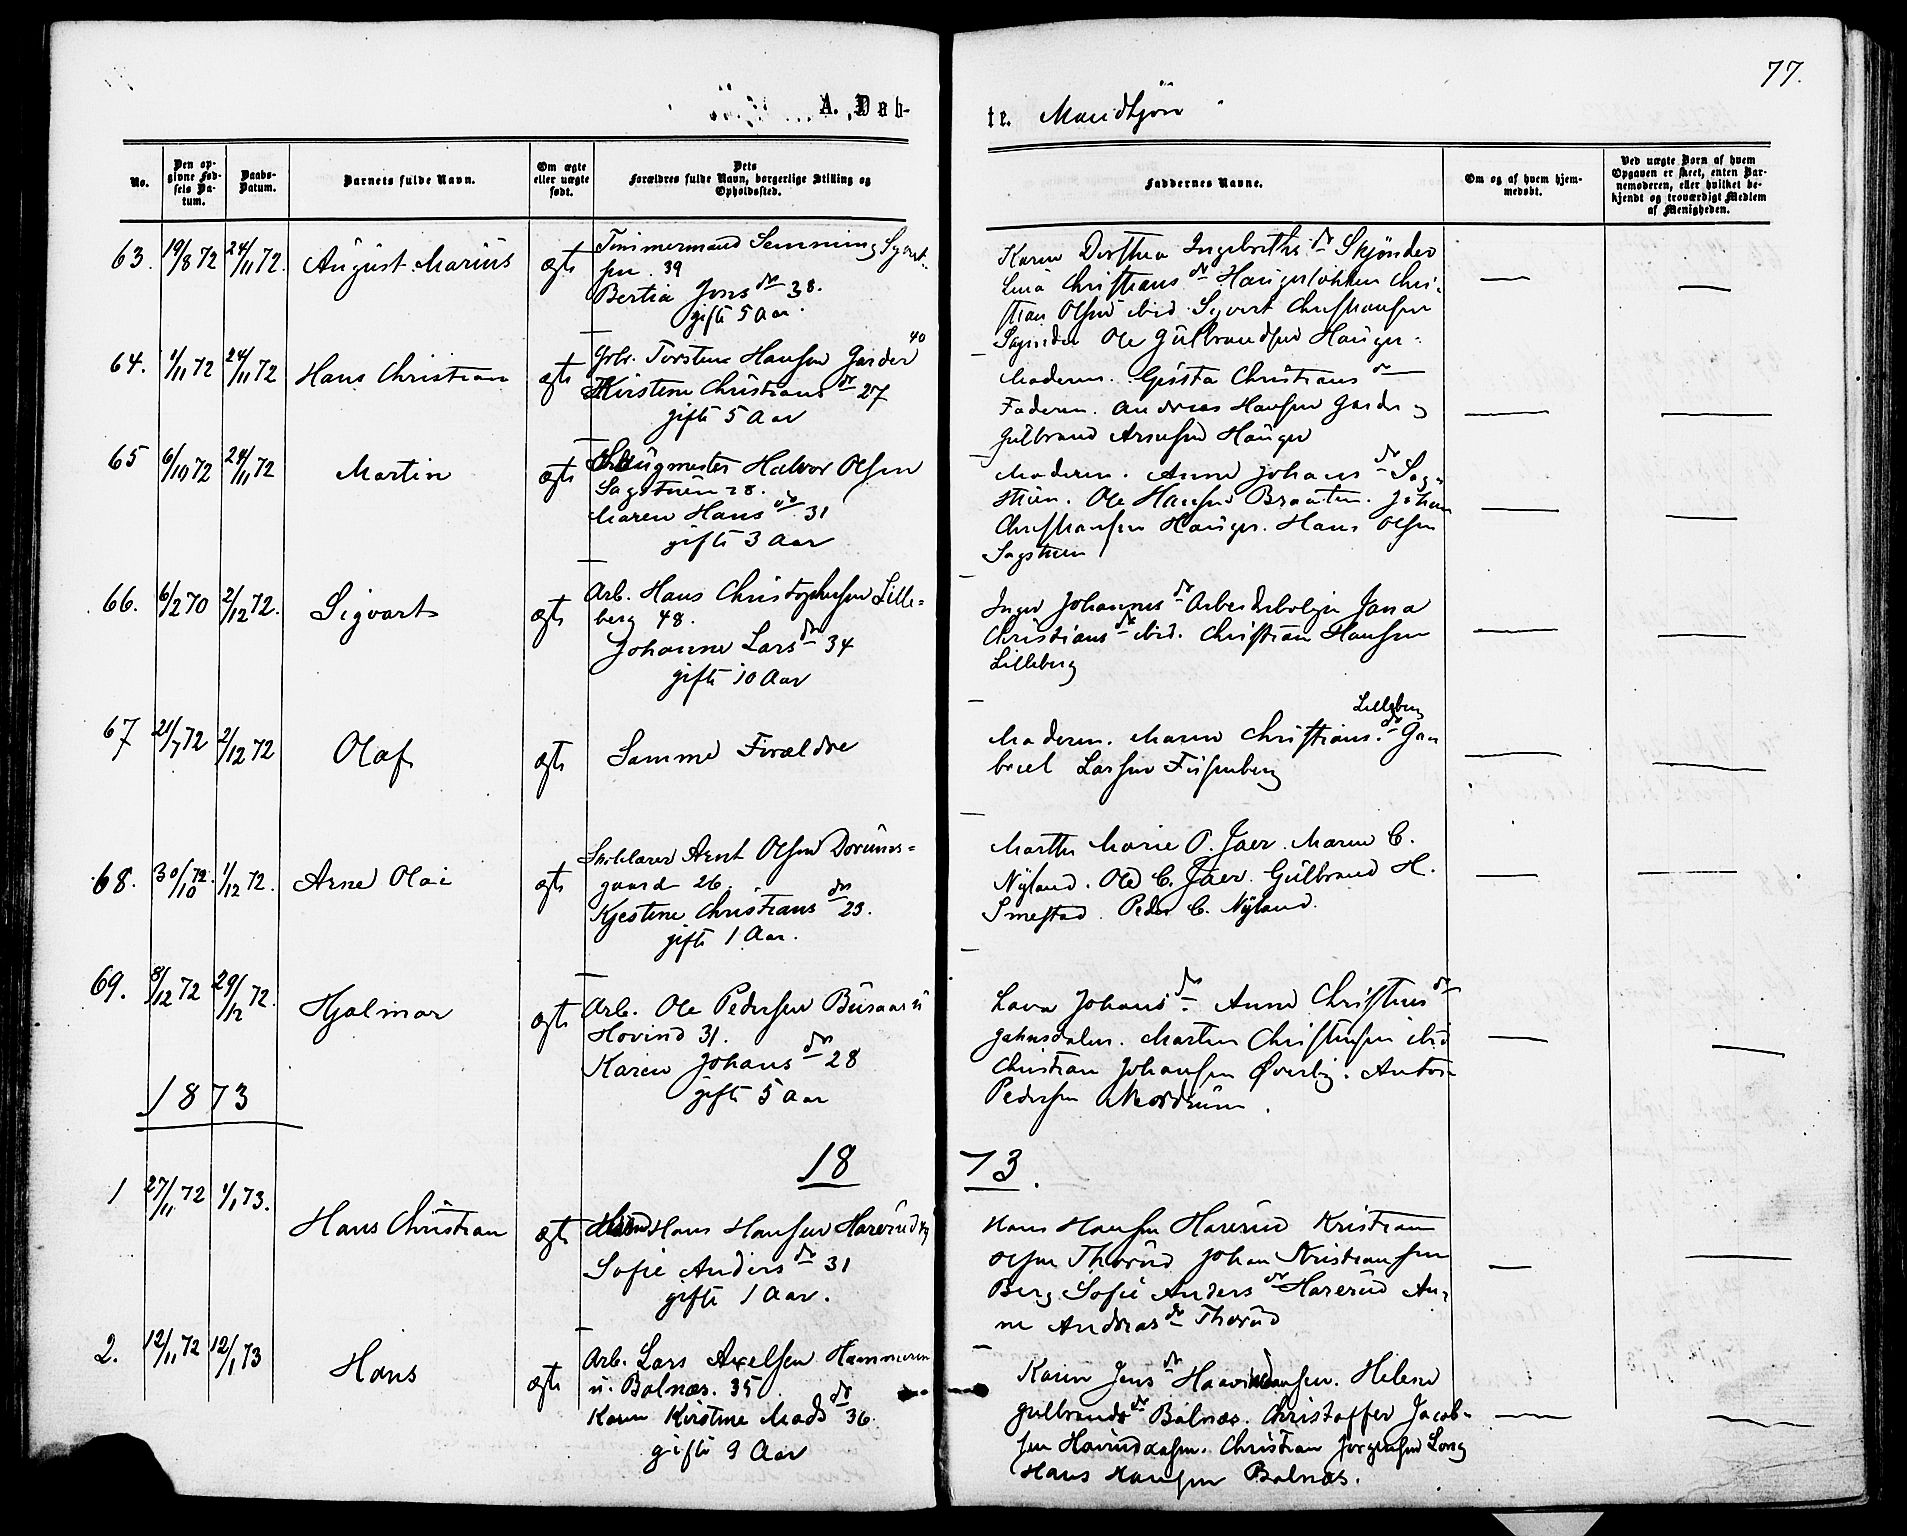 77.
A. Døb-
te. Mandkjøn
No.
Den op-
givne Fød-
sels Da-
tum.
Daabs-
Datum.
Barnets fulde Navn.
Om ægte
eller uægte
født.
Dets
Forældres fulde Navn, borgerlige Stilling og
Opholdssted.
Faddernes Navne.
Om og af hvem hjem-
medøbt.
Ved uægte Børn af hvem
Opgaven er skeet, enten Bar-
nemoderen, eller hvilket be-
kjendt og troværdigt Medlem
af Menigheden.
63. 19/8 72 24/11 72. August Marius ægte
Tømmermand Semming Syvert-
sen. 39
Bertia Jens dr 38.
gifte 5 Aar.
Karen Dorthea Ingebreths dr Skjønder
Lina Christians dr Haugerløkken Chri-
stian Olsen ibid. Syvert Christiansen
Ole Gulbrandsen Hauger.
64. 1/11 72 24/11 72 Hans Christian ægte
Grbr. Torsten Hansen Garder 40
Kirstine Christians dr 27
gifte 5 Aar
Moderen. Christians dr
Faderen. Andreas Hansen Garder og
Gulbrand Arnesen Hauger
65 6/10 72 24/11 72 Martin ægte
Halvor Olsen
Sagstuen 28.
Maren Hans dr 31
gifte 3 Aar
Moderen. Anne Johans dr Sag-
stuen. Ole Hansen Braaten. Johan
Christiansen Hauger. Hans Olsen
Sagstuen
66. 6/2 70 2/12 72. Sigvart ægte
Arb. Hans Christophersen Lille-
berg 48.
Johanne Lars dr 34
gifte 10 Aar
Inger Johannes dr Arbeiderbolig Jana
Christians dr ibid. Christian Hansen
Lilleberg
67 21/7 72 2/12 72 Olaf ægte
Samme Forældre
Lilleberg
Moderen. Maren Christians dr Ga-
briel Larsen
68. 30/10 72. 1/12 72. Arne Olai ægte
Skolelærer Arnt Olsen
gaard 26.
Kjestine Christians dr 23.
gifte 1 Aar.
Marthe Marie P. Jaer. Maren C.
Nyland. Ole C. Jaer. Gulbrand H.
Smestad. Peder C. Nyland.
69. 8/12 72 29/12 72. Hjalmar ægte
Arb. Ole Pedersen Busaas u
Hovind 31.
Karen Johans dr 28
gifte 5 Aar
Lava Johans dr Anne Christens dr
Jahnsdalen. Martin Christensen ibid
Christian Johansen Øverby. Anton
Pedersen Mordrum.
1873
1873.
1 27/11 72 1/1 73. Hans Christian ægte
Hans Hansen Harerud
Sofie Anders dr 31
gifte 1 Aar.
Hans Hansen Harerud Kristian
Olsen Thorud Johan Kristiansen
Berg Sofie Anders dr Harerud An-
ne Andreas dr Thorud
2. 12/11 72 12/1 73 Hans ægte
Arb. Lars Axelsen Hammeren
u. Bolnæs. 35.
Karen Kirstine Mads dr 36.
gifte 9 Aar
Karen Jens dr Helene
Gulbrands dr Bolnæs. Christoffer Jacob-
sen Hovindaasen. Christian Jørgensen Lang
Hans Hansen Bolnæs.